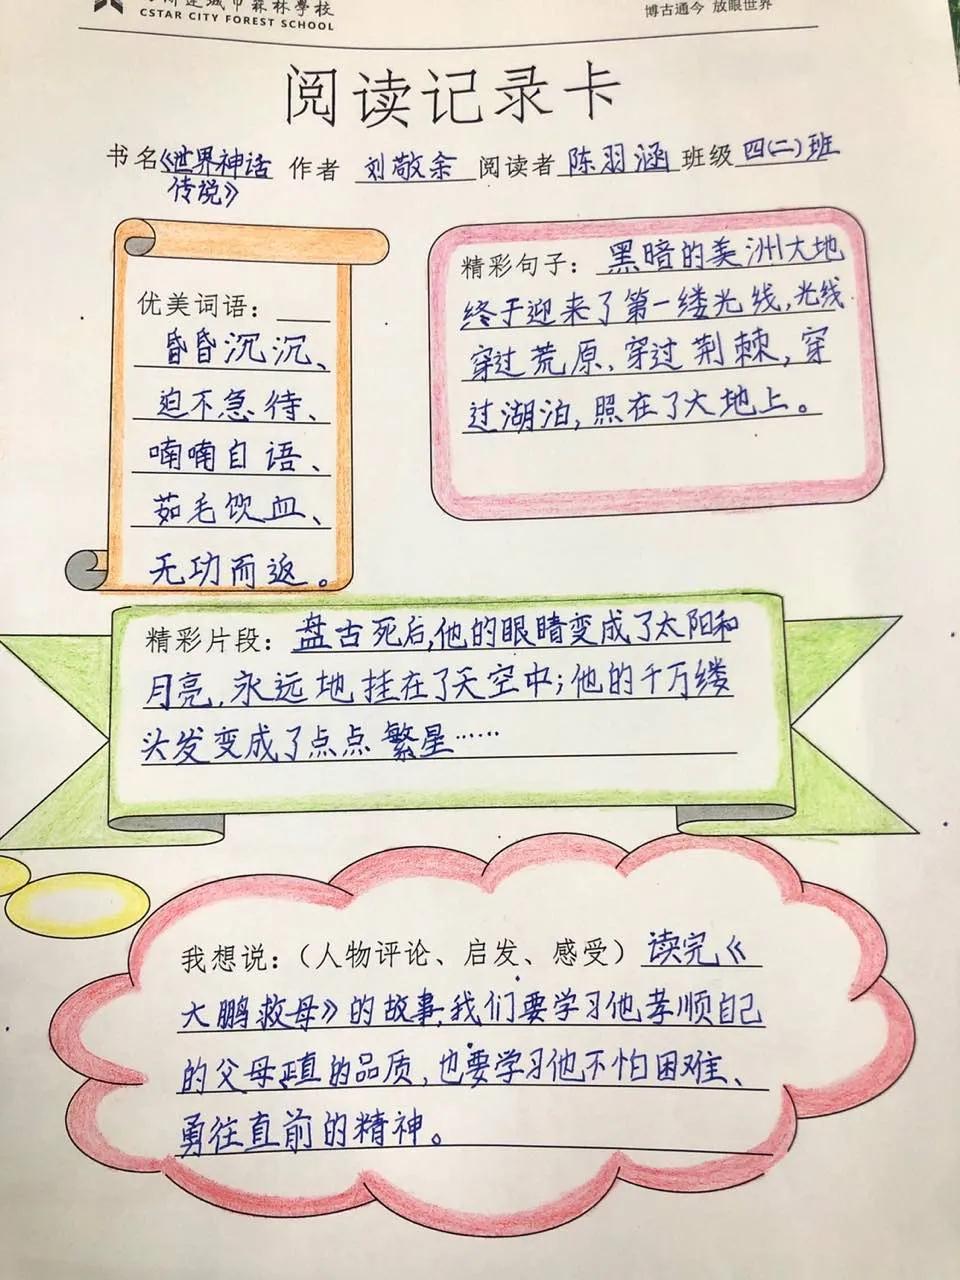 城市森林学校
CSTAR CITY FOREST SCHOOL
博古通今 放眼世界
阅读记录卡
书名《世界神话 作者 刘敬余 阅读者 陈羽涵 班级 四(二)班
传说》
优美词语：
昏昏沉沉、
迫不急待、
喃喃自语、
茹毛饮血、
无功而返。
精彩句子：黑暗的美洲大地
终于迎来了第一缕光线,光线
穿过荒原、穿过荆棘,穿
过湖泊,照在了大地上。
精彩片段：盘古死后,他的眼睛变成了太阳和
月亮,永远地挂在了天空中;他的千万缕
头发变成了点点繁星……
我想说：（人物评论、启发、感受）读完《
大鹏救母》的故事,我们要学习他孝顺自己
的父母正直的品质,也要学习他不怕困难、
勇往直前的精神。